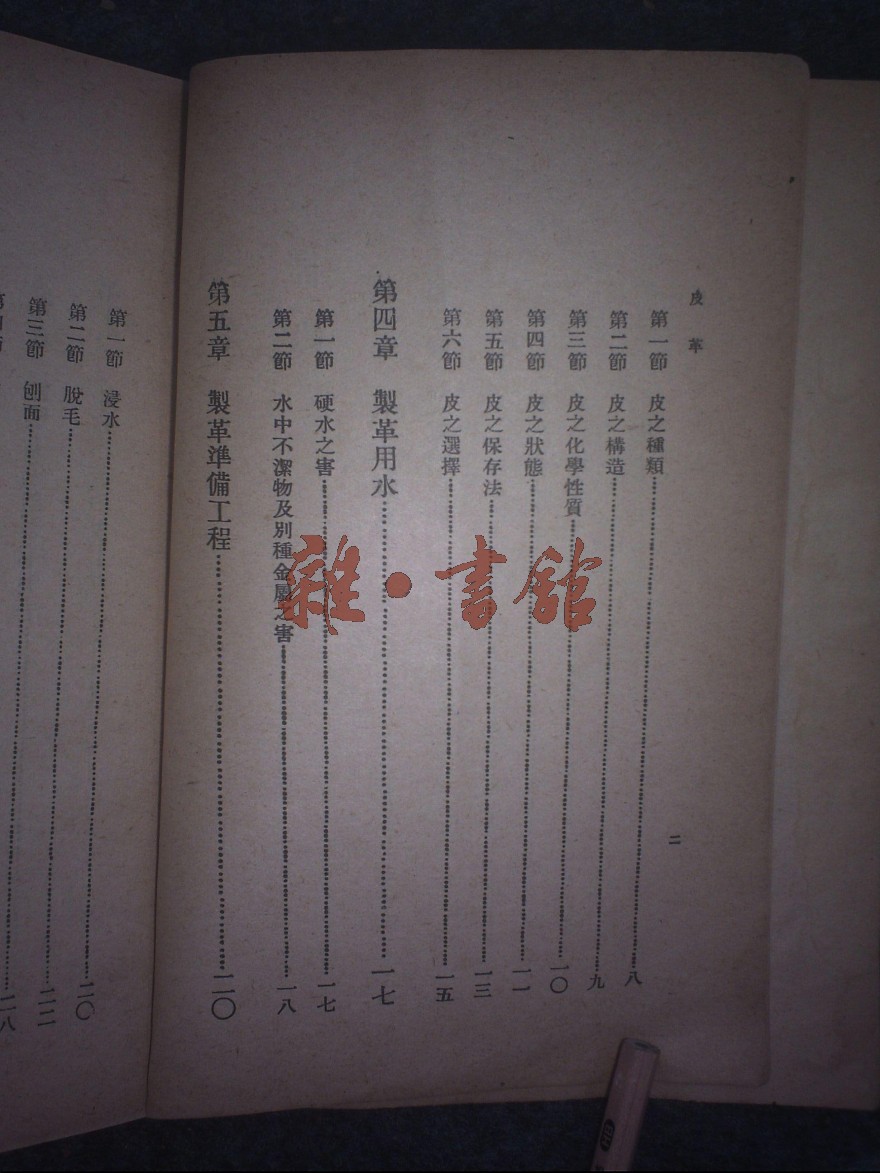 皮革
二
第一節 皮之種類 八
第二節 皮之構造 九
第三節 皮之化學性質 一〇
第四節 皮之狀態 一一
第五節 皮之保存法 一三
第六節 皮之選擇 一五
第四章 製革用水 一七
第一節 硬水之害 一七
第二節 水中不潔物及別種金屬之害 一八
第五章 製革準備工程 二〇
第一節 浸水 二〇
第二節 脫毛 二二
第三節 刨面 二八
雜·書館